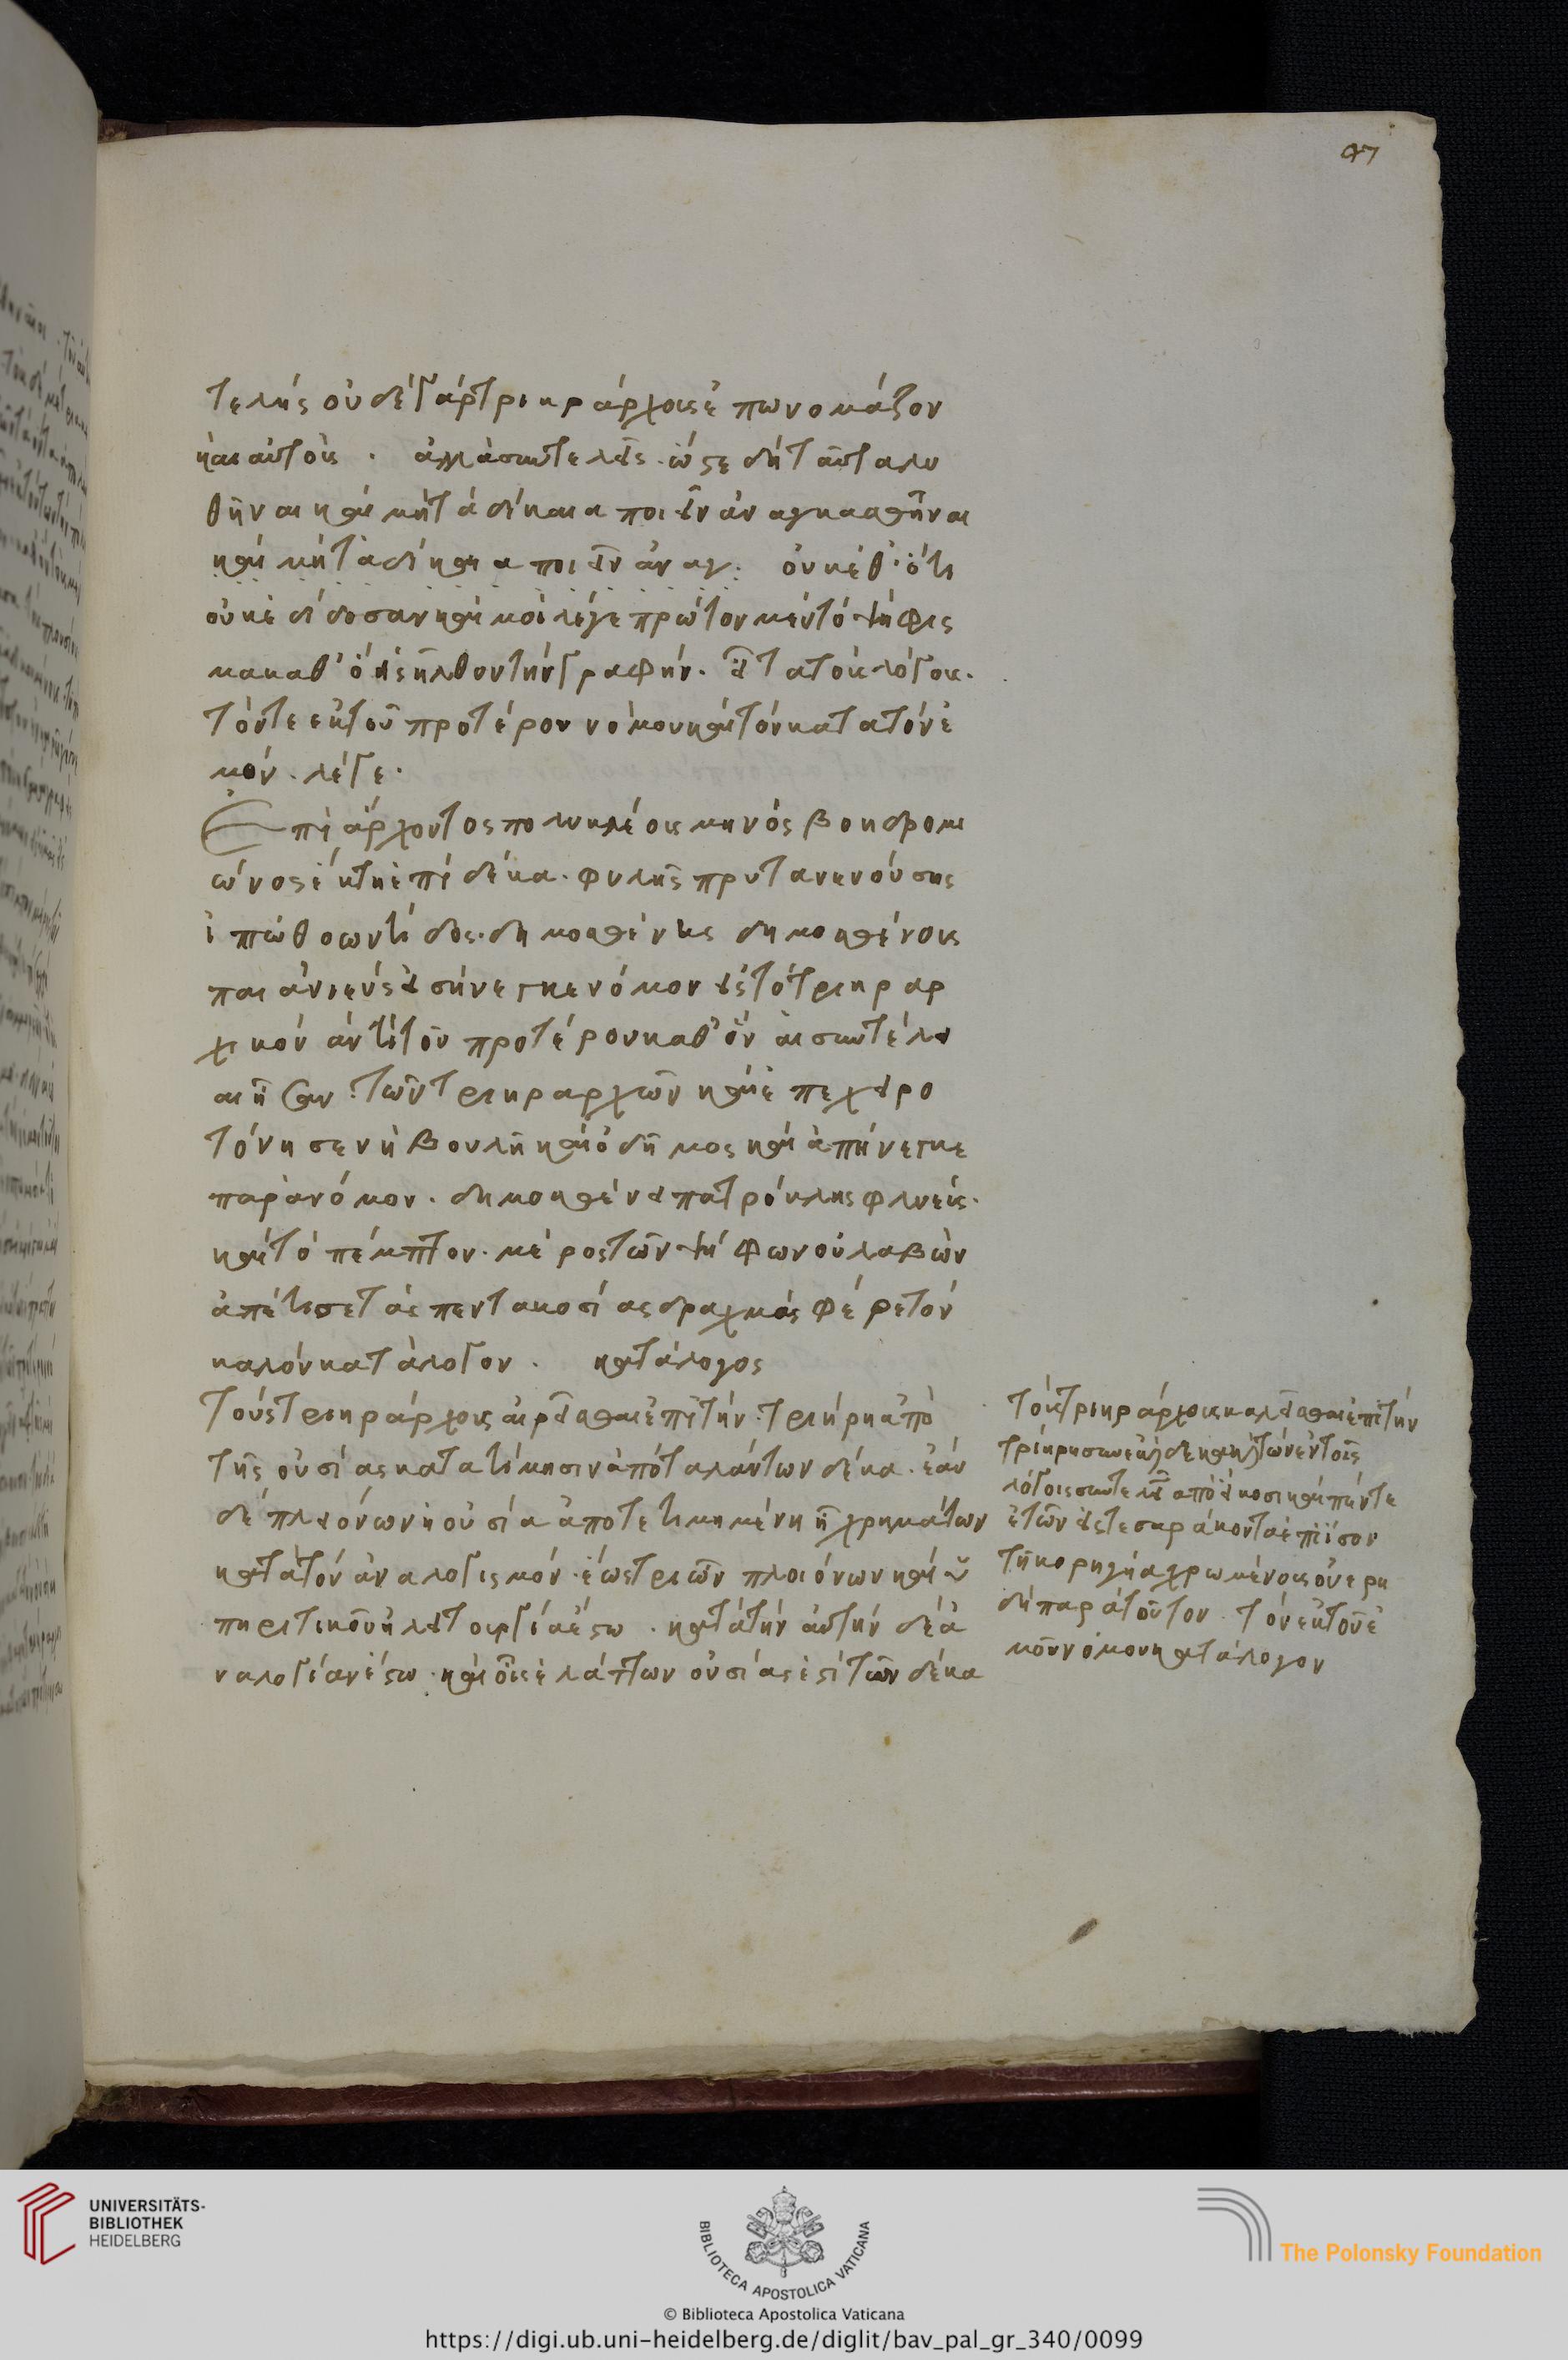 97
τελής οὐδὲ γὰρ τριηράρχους ἐπωνομάζον
ἑαυτοὺς · ἀλλὰ συντελεῖς · ὥστε δὴ ταῦτα λυ
θῆναι καὶ μὴ τὰ δίκαια ποιεῖν ἀναγκασθῆναι
καὶ μὴ τὰ δίκαια ποιεῖν ἀναγ. οὐκ ἔθ' ὅτι
οὐκ ἐδίδοσαν καί μοι λέγε πρῶτον μὲν τὸ ψήφισ
μα καθ' ὃ εἰσῆλθον τὴν γραφήν. εἶτα τοὺς λόγους.
τόν τε ἐκ τοῦ προτέρου νόμου καὶ τὸν κατὰ τὸν ἐ
μόν. λέγε.
Ἐπὶ ἄρχοντος πολυκλέους μηνὸς βοηδρομι
ῶνος ἕκτῃ ἐπὶ δέκα. φυλῆς πρυτανευούσης
ἱπωθοωντίδος. δημοσθένης δημοσθένους
παιανιεὺς εἰσήνεγκε νόμον εἰς τὸ τριηραρ
χικὸν ἀντὶ τοῦ προτέρου καθ' ὃν αἱ συντέλει
αι ἦσαν τῶν τριηραρχῶν καὶ ἐπεχειρο
τόνησεν ἡ βουλὴ καὶ ὁ δῆμος καὶ ἀπήνεγκε
παρανόμων. δημοσθένει πατροκλῆς φλυεύς.
καὶ τὸ πέμπτον μέρος τῶν ψήφων οὐ λαβὼν
ἀπέτισε τὰς πεντακοσίας δραχμάς φέρε τὸν
καλὸν κατάλογον. κατάλογος
Τοὺς τριηράρχους αἱρεῖσθαι ἐπὶ τὴν τριήρη ἀπὸ
τῆς οὐσίας κατὰ τίμησιν ἀπὸ ταλάντων δέκα. ἐὰν
δὲ πλειόνων ἡ οὐσία ἀποτετιμημένη ᾖ χρημάτων
κατὰ τὸν ἀναλογισμὸν ἕως τριῶν πλοιόνων καὶ ὑ
πηρετικοῦ ἡ λειτουργία ἔστω. κατὰ τὴν αὐτὴν δὲ ἀ
ναλογίαν ἔστω καὶ οἷς ἐλάττων οὐσία ἐστὶ τῶν δέκα
τοὺς τριηράρχους καλεῖσθαι ἐπὶ τὴν
τριήρη συνεκκαίδεκα ἐκ τῶν ἐν τοῖς
λόχοις συντελειῶν ἀπὸ εἴκοσι καὶ πέντε
ἐτῶν εἰς τεσσαράκοντα ἐπὶ ἴσον
τῇ χορηγίᾳ χρωμένους φέρε
δὴ παρὰ τοῦτον τὸν ἐκ τοῦ ἐ
μοῦ νόμου κατάλογον
UNIVERSITÄTS-
BIBLIOTHEK
HEIDELBERG
BIBLIOTECA APOSTOLICA VATICANA
The Polonsky Foundation
© Biblioteca Apostolica Vaticana
https://digi.ub.uni-heidelberg.de/diglit/bav_pal_gr_340/0099